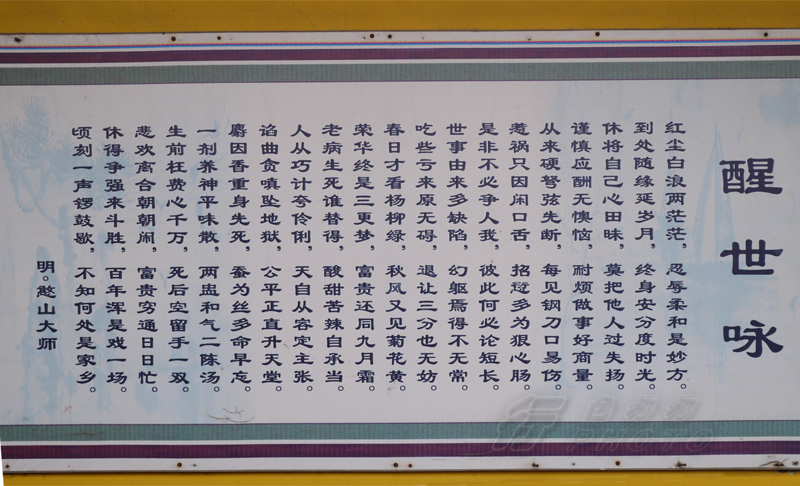 醒世咏
红尘白浪两茫茫，忍辱柔和是妙方。
到处随缘延岁月，终身安分度时光。
休将自己心田昧，莫把他人过失扬。
谨慎应酬无懊恼，耐烦做事好商量。
从来硬弩弦先断，每见钢刀口易伤。
惹祸只因闲口舌，招愆多为狠心肠。
是非不必争人我，彼此何必论短长。
世事由来多缺陷，幻躯焉得不无常。
吃些亏来原无碍，退让三分也无妨。
春日才看杨柳绿，秋风又见菊花黄。
荣华终是三更梦，富贵还同九月霜。
老病生死谁替得，酸甜苦辣自承当。
人从巧计夸伶俐，天自从容定主张。
谄曲贪嗔坠地狱，公平正直升天堂。
麝因香重身先死，蚕为丝多命早忘。
一剂养神平味散，两盅和气二陈汤。
生前枉费心千万，死后空留手一双。
悲欢离合朝朝闹，富贵穷通日日忙。
休得争强来斗胜，百年浑是戏一场。
顷刻一声锣鼓歇，不知何处是家乡。
明。憨山大师
PHOTO